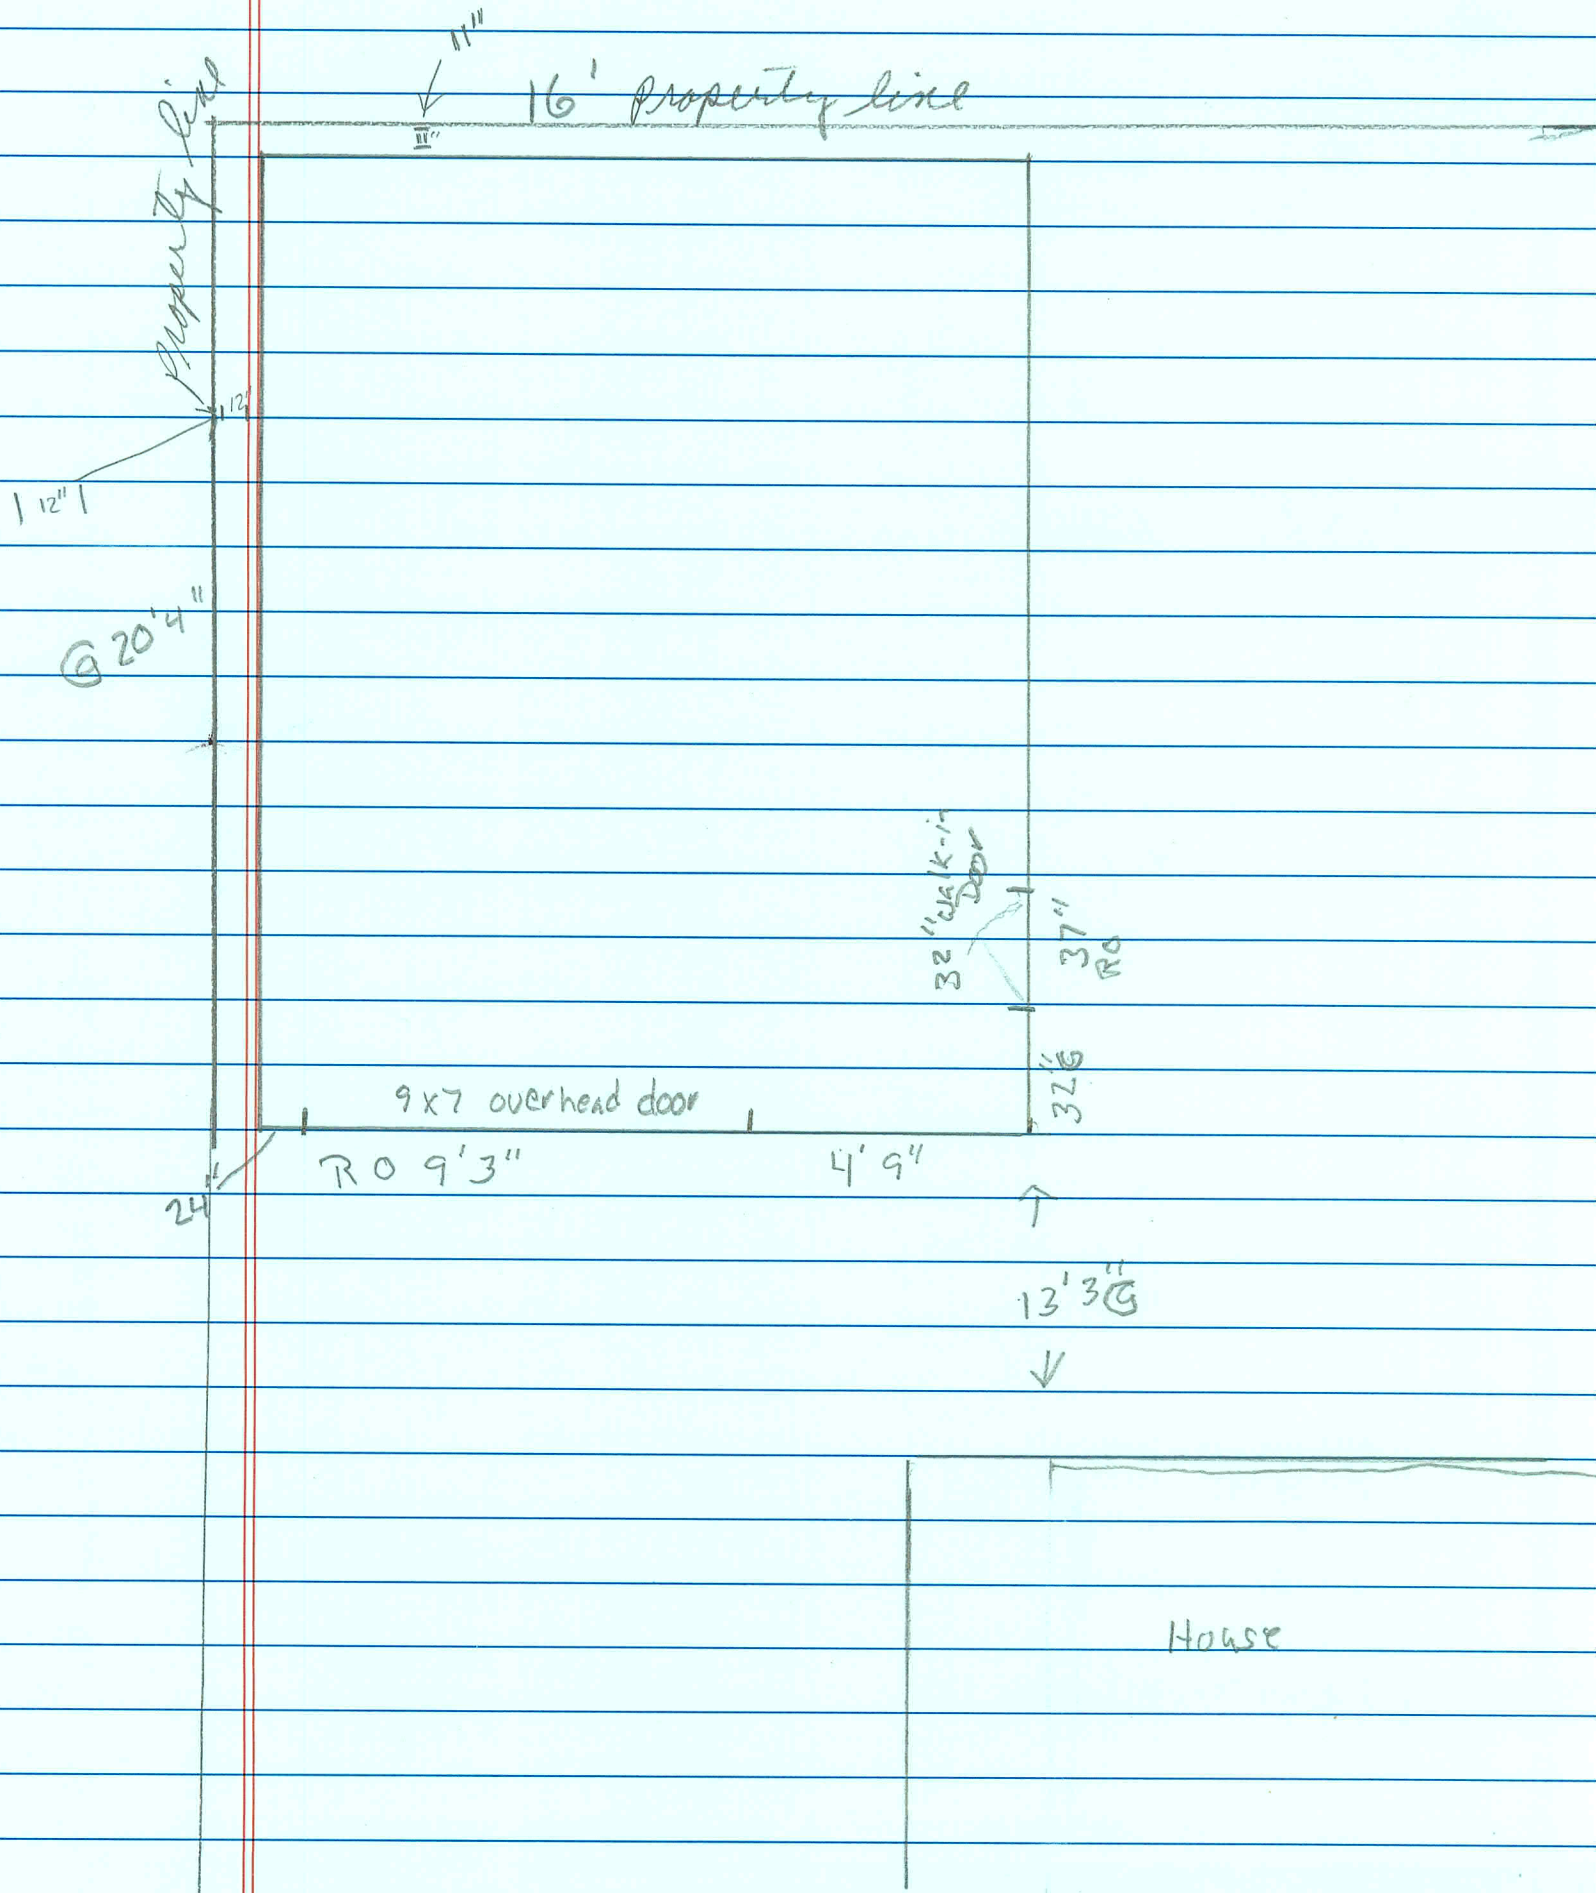 11"
16' Property line
11"
Property line
12"
| 12" |
@ 20'4"
32" walk-in
Door
37"
RO
32"@
9x7 overhead door
RO 9'3"
4'9"
24"
13'3"@
House